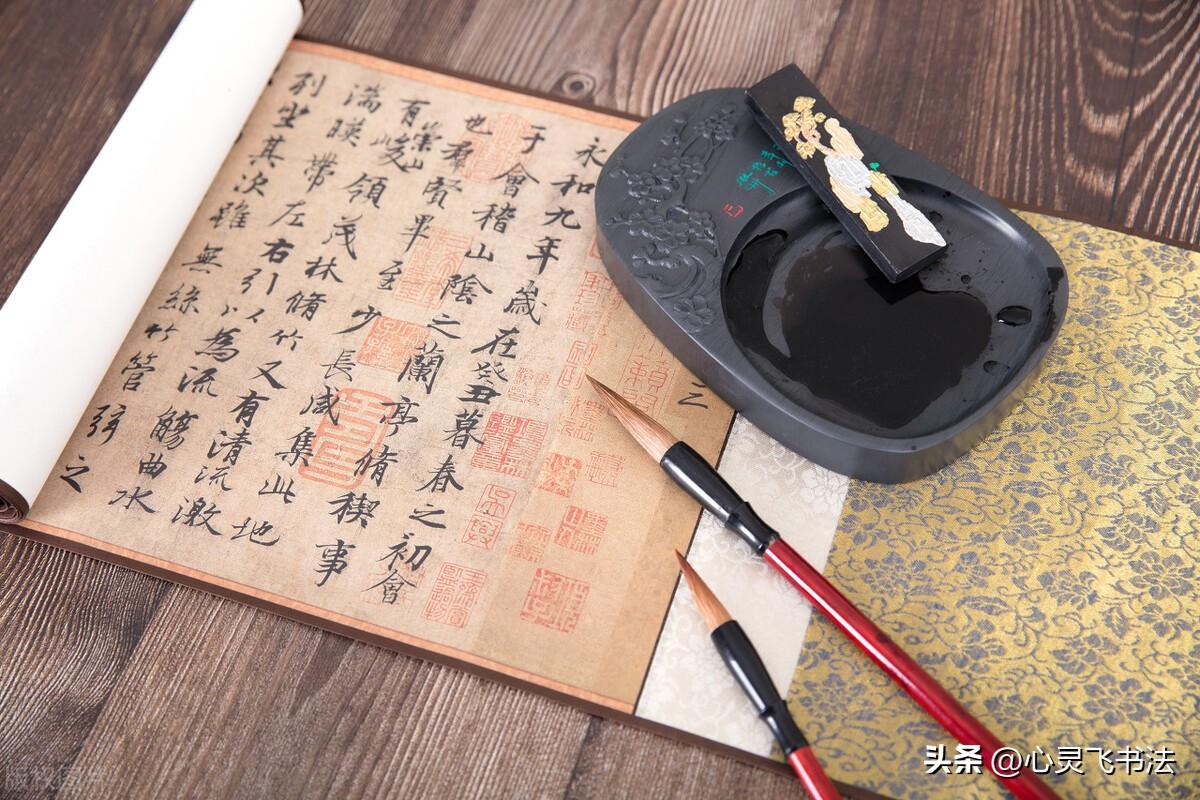 永和九年歲在癸丑暮春之初會
于會稽山陰之蘭亭脩稧事
也羣賢畢至少長咸集此地
有崇山峻領茂林脩竹又有清流激
湍暎帶左右引以為流觴曲水
列坐其次雖無絲竹管弦之
头条 @心灵飞书法